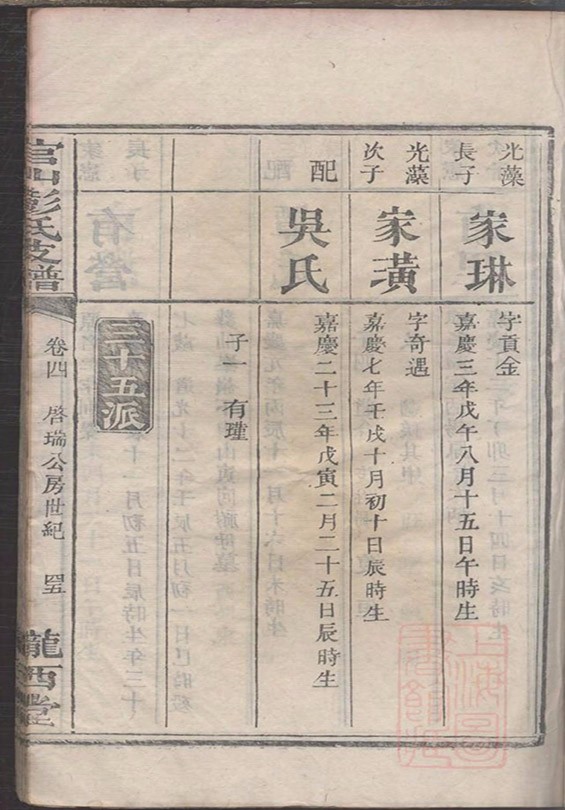 光藻
長子
家琳
字貢金
嘉慶三年戊午八月十五日午時生
光藻
次子
家璜
字奇遇
嘉慶七年壬戌十月初十日辰時生
配
吳氏
嘉慶二十三年戊寅二月二十五日辰時生
子一 有瑾
三十五派
宮山彭氏支譜
卷四 啓瑞公房世紀 四五
隴西堂
上海圖書館藏